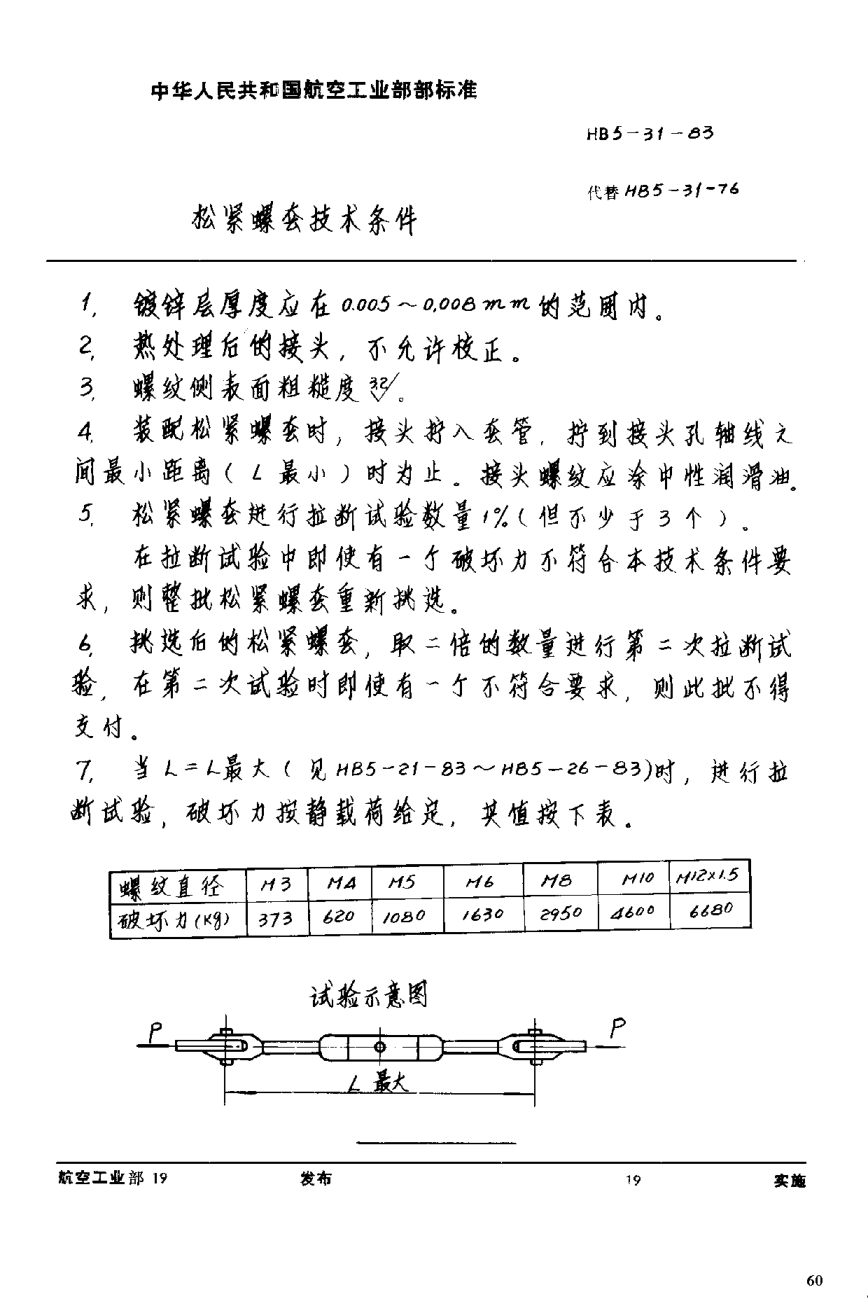 中华人民共和国航空工业部部标准
HB5-31-83
代替 HB5-31-76
松紧螺套技术条件
1, 镀锌层厚度应在 0.005～0,008mm 的范围内。
2, 热处理后的接头，不允许校正。
3, 螺纹侧表面粗糙度 3.2/。
4. 装配松紧螺套时，接头拧入套管，拧到接头孔轴线之
间最小距离（L 最小）时为止。接头螺纹应涂中性润滑油。
5, 松紧螺套进行拉断试验数量1%（但不少于3个）。
在拉断试验中即使有一个破坏力不符合本技术条件要
求，则整批松紧螺套重新挑选。
6, 挑选后的松紧螺套，取二倍的数量进行第二次拉断试
验，在第二次试验时即使有一个不符合要求，则此批不得
交付。
7, 当 L=L最大（见 HB5-21-83～HB5-26-83)时，进行拉
断试验，破坏力按静载荷给定，其值按下表。
螺纹直径 M3 M4 M5 M6 M8 M10 M12x1.5
破坏力(Kg) 373 620 1080 1630 2950 4600 6680
试验示意图
P P
L 最大
航空工业部 19 发布 19 实施
60